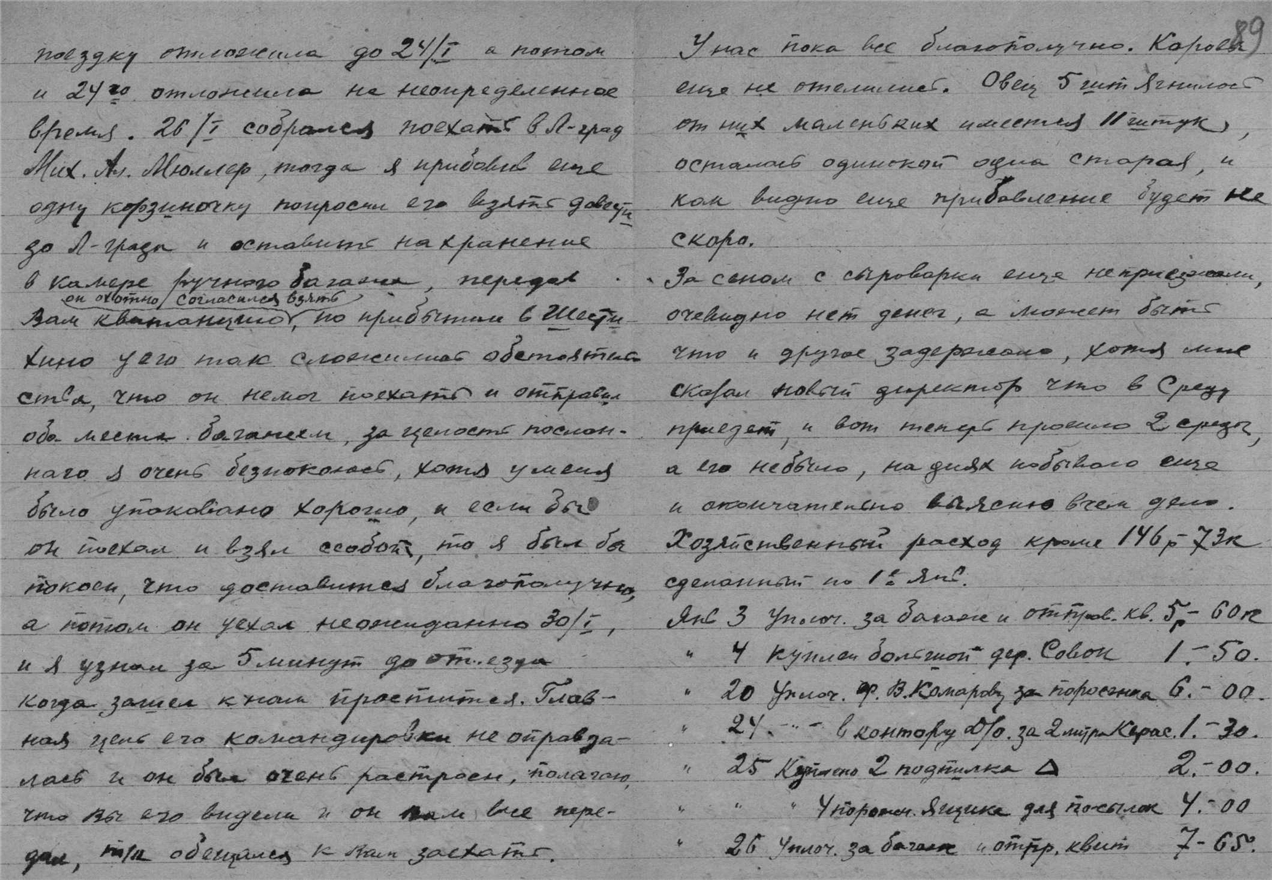 поездку отложила до 24/I а потом
и 24го отложила на неопределенное
время. 26/I собрался поехать в Л-град
Мих. Ал. Мюллер, тогда я прибавив еще
одну корзиночку попросил его взять довезти
до Л-града и оставить на хранение
в камере ручного багажа, передав
он охотно согласился взять
Вам квитанцию, по прибытии в Шести
хино у его так сложились обстоятель
ства, что он немог поехать и отправил
оба места багажем, за целость послан-
наго я очень безпокоюсь, хотя у меня
было упаковано хорошо, и если бы
он поехал и взял ссобой, то я был бы
покоен, что доставится благополучно,
а потом он уехал неожиданно 30/I,
и я узнал за 5 минут до отъезда
когда зашел к нам проститься. Глав-
ная цель его командировки не оправда-
лась и он был очень растроен, полагаю,
что вы его видели и он вам все пере-
дал, обещался к Вам заехать.
89
У нас пока все благополучно. Коровы
еще не отелились. Овец 5 шт ягнилось
от них маленьких имеется 11 штук,
осталась одинокой одна старая, и
как видно еще прибавление будет не
скоро.
За сеном с сыроварки еще не приезжали,
очевидно нет денег, а может быть
что и другое задержало, хотя мне
сказал новый директор что в Среду
приедет, и вот теперь прошло 2 среды,
а его небыло, на днях побываю еще
и окончательно выясню вчем дело.
Хозяйственный расход кроме 146р 73к
сделанный по 1е Янв.
Янв 3 Уплоч. за багаж и отправ. кв. 5р- 60к
" 4 куплен большой дер. Совок 1.-50.
" 20 Уплоч. Ф. В. Комарову за поросенка 6.- 00.
" 24. -"- в контору Д/о. за 2 литра Керас. 1.-30.
" 25 Куплено 2 подпилка Δ 2.-00.
" " " 4 порожн. ящика для посылок 4.-00
" 26 Уплоч. за багаж и отпр. квит 7-65.